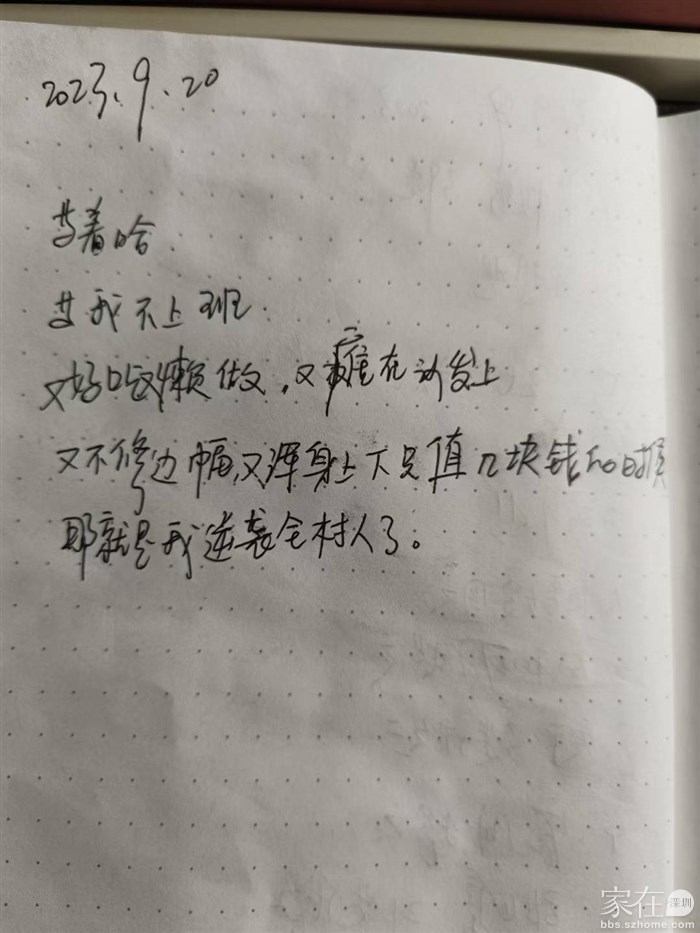 2023.9.20
等着哈
等我不上班
又好吃懒做,又瘫在沙发上
又不修边幅,又浑身上下只值几块钱的时候
那就是我逆袭全村人了。
家在深圳
bbs.szhome.com